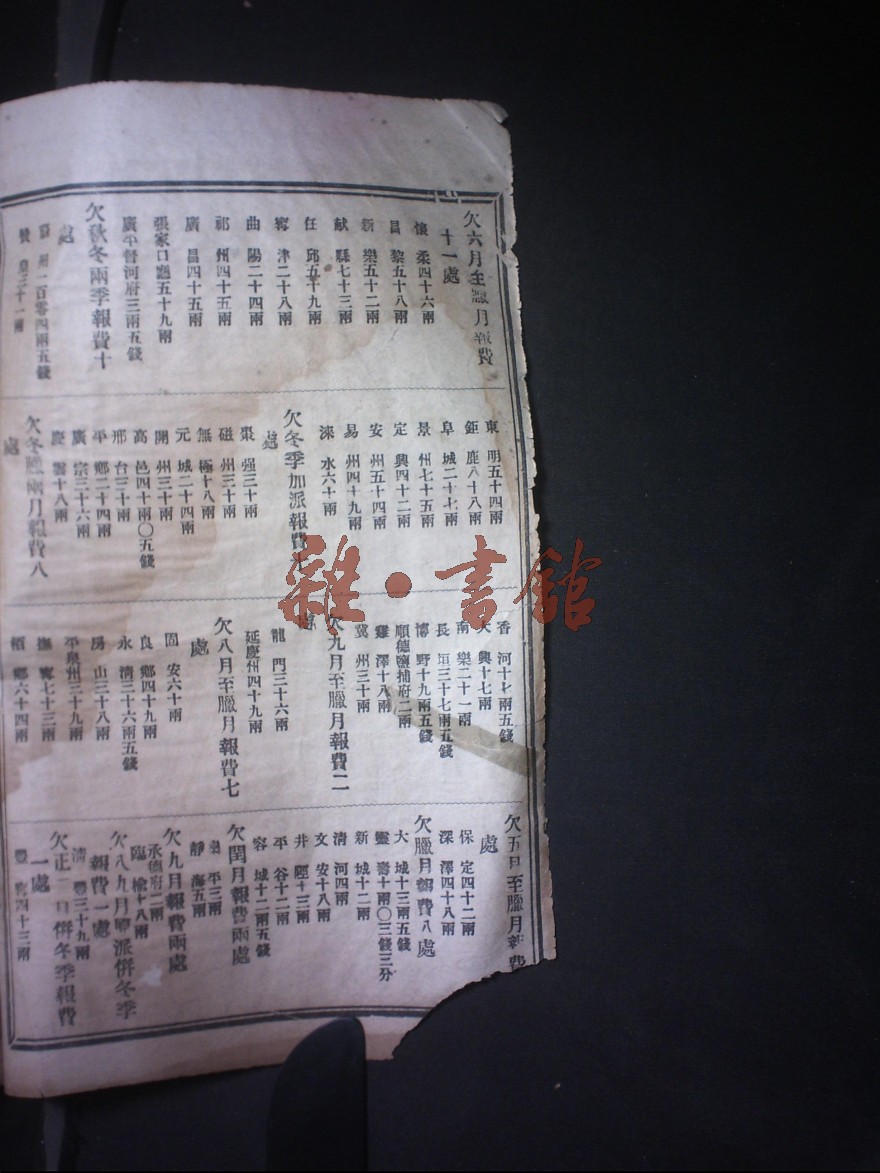 欠六月至臘月報費
十一處
懷　柔四十六兩
昌　黎五十八兩
新　樂五十二兩
献　縣七十三兩
任　邱五十九兩
寗　津二十八兩
曲　陽二十四兩
祁　州四十五兩
廣　昌四十五兩
張家口廳五十九兩
廣平督河府三兩五錢
欠秋冬兩季報費十
處
州一百零四兩五錢
三十一兩
東　明五十四兩
鉅　鹿八十八兩
阜　城二十七兩
景　州七十五兩
定　興四十二兩
安　州五十四兩
易　州四十九兩
淶　水六十兩
欠冬季加派報費九
處
棗　强三十兩
磁　州三十兩
無　極十八兩
元　城二十四兩
開　州三十兩
高　邑四十兩〇五錢
邢　台三十兩
平　鄉二十四兩
廣　宗三十六兩
慶　雲十八兩
欠冬臘兩月報費八
處
香　河十七兩五錢
大　興十七兩
南　樂二十一兩
長　垣三十七兩五錢
博　野十九兩五錢
順德鹽捕府二兩
雞　澤十八兩
冀　州三十兩
欠九月至臘月報費二
處
龍　門三十六兩
延慶州四十九兩
欠八月至臘月報費七
處
固　安六十兩
良　鄉四十九兩
永　清三十六兩五錢
房　山三十八兩
平泉州三十九兩
撫　寗七十三兩
栢　鄉六十四兩
欠五月至臘月報費
處
保　定四十二兩
深　澤四十八兩
欠臘月報費八處
大　城十三兩五錢
靈　壽十兩〇三錢三分
新　城十二兩
清　河四兩
文　安十八兩
井　陘十三兩
平　谷十二兩
容　城十二兩五錢
欠閏月報費兩處
平三兩
靜　海五兩
欠九月報費兩處
承德府二兩
臨　榆十八兩
欠八九月單派併冬季
報費一處
清　豐三十九兩
欠正二月併冬季報費
一處
四十三兩
雜·書館